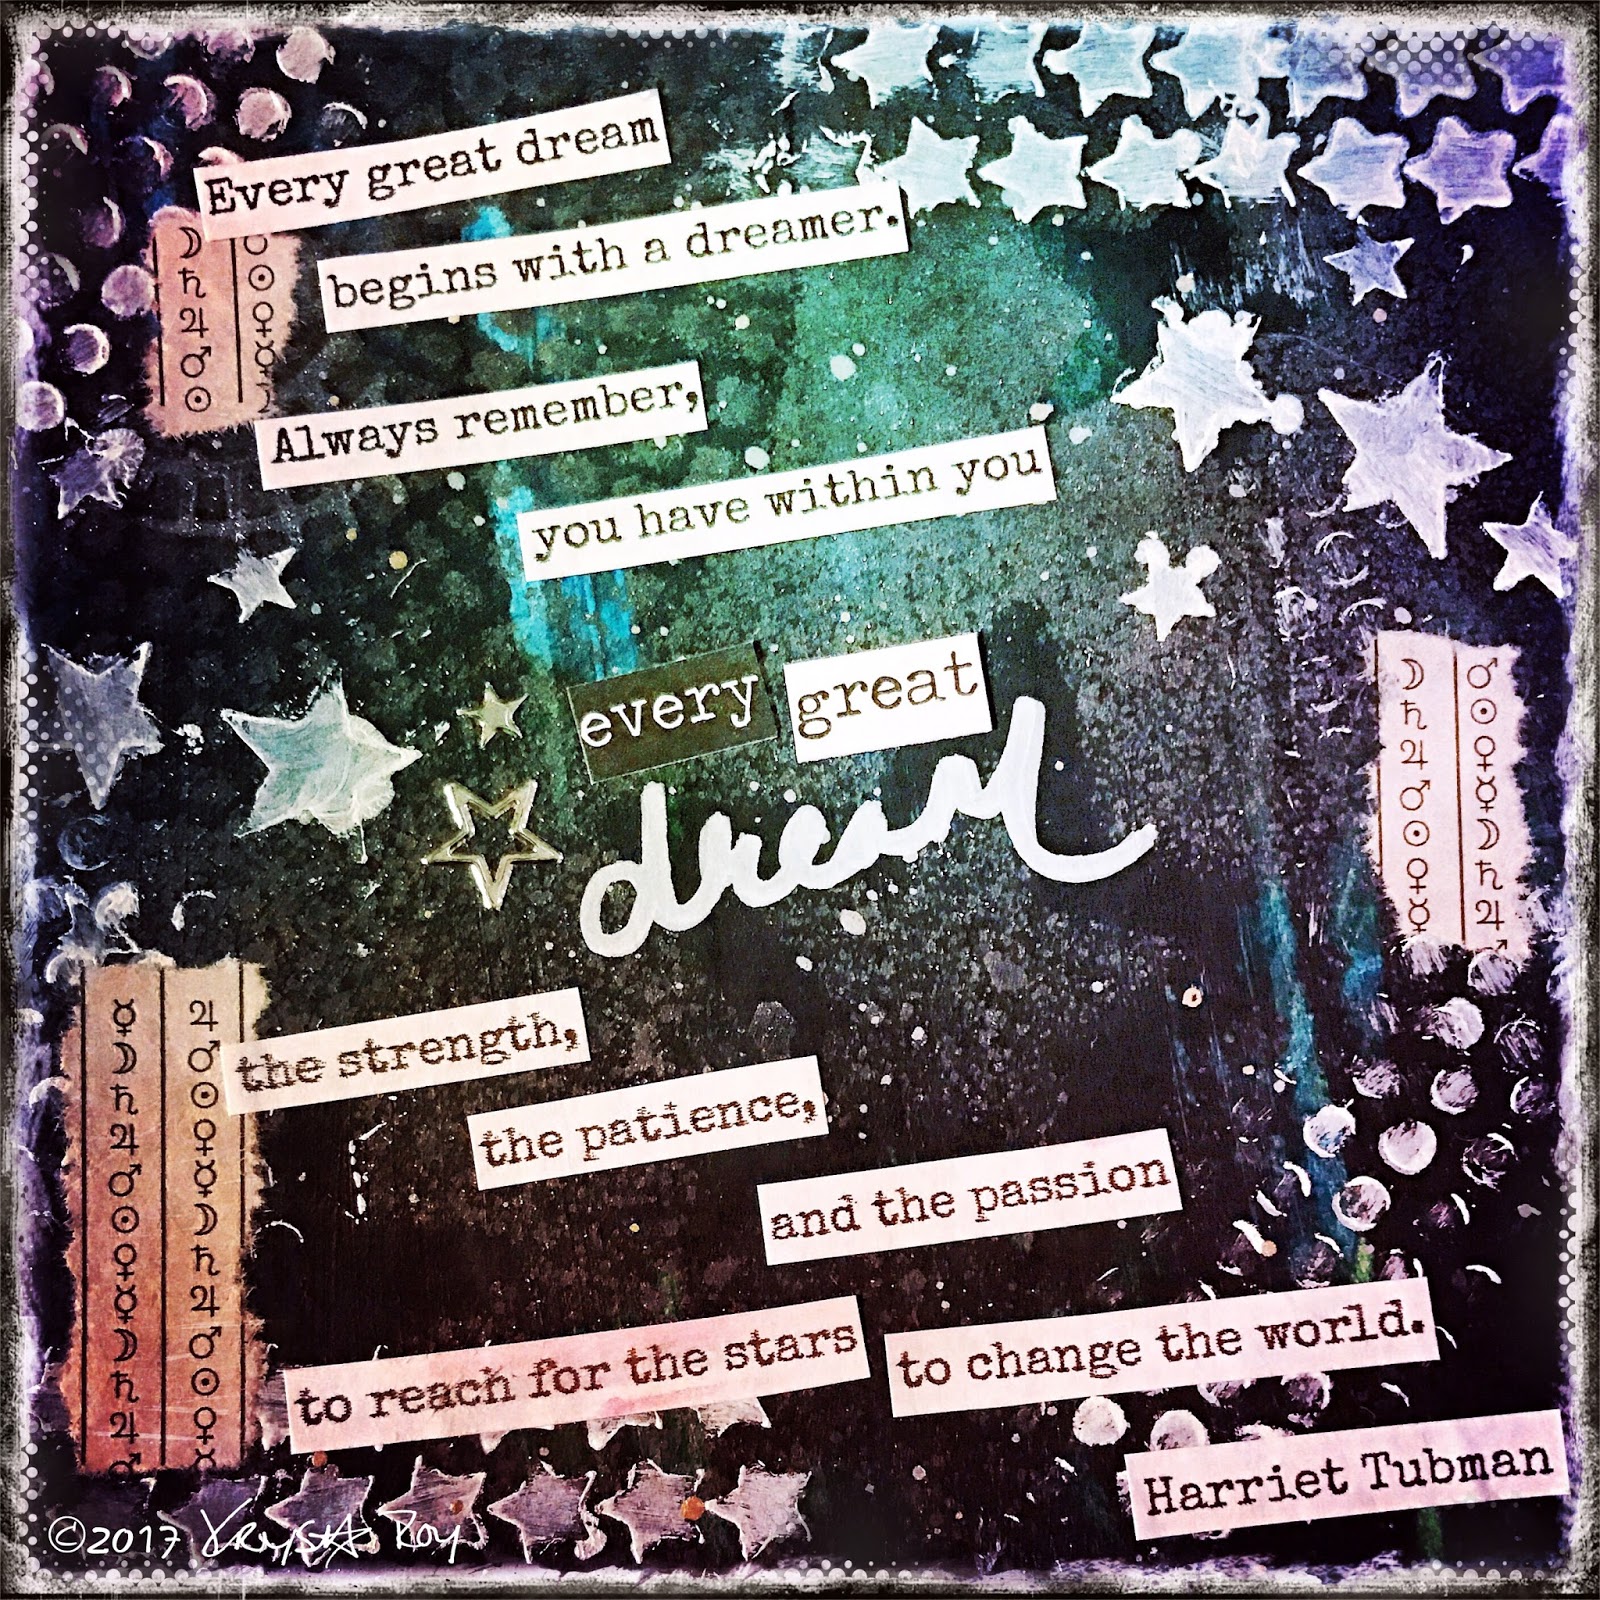 Every great dream
begins with a dreamer.
Always remember,
you have within you
every great
dream
the strength,
the patience,
and the passion
to reach for the stars
to change the world.
Harriet Tubman
©2017 Krysta Roy